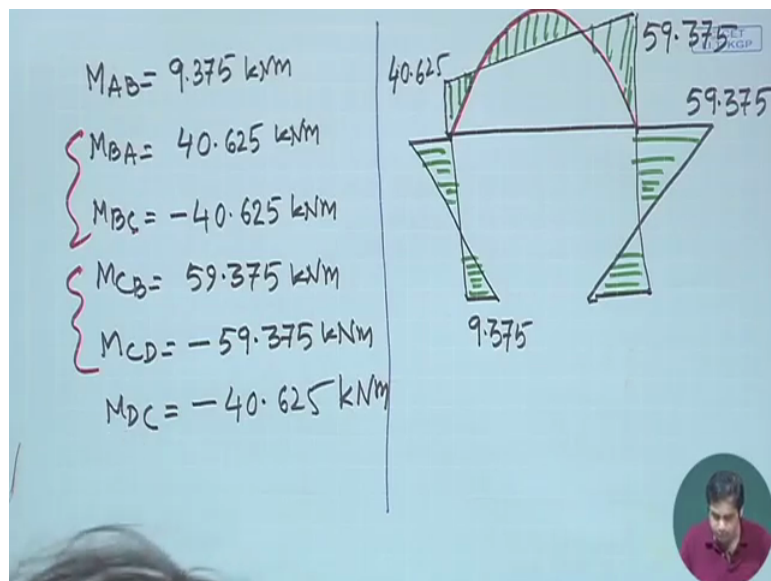 M_AB = 9.375 kNm
M_BA = 40.625 kNm
M_BC = -40.625 kNm
M_CB = 59.375 kNm
M_CD = -59.375 kNm
M_DC = -40.625 kNm
59.375
KGP
40.625
59.375
9.375